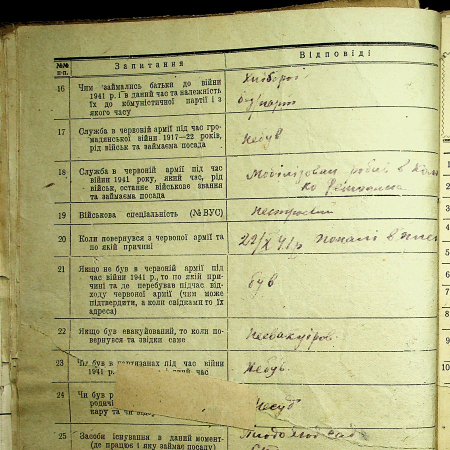 №№ п-п. Запитання Відповіді
16 Чим займались батьки до війни
1941 р. і в даний час та належність
їх до комуністичної партії і з
якого часу
Хлібороб
б/парт
17 Служба в червоній армії під час гро-
мадянської війни 1917—22 років,
рід військ та займаєма посада
Небув
18 Служба в червоній армії під час
війни 1941 року, який час, рід
військ, останнє військове звання
та займаєма посада
Мобілізован в
19 Військова спеціальність (№ ВУС)
20 Коли повернувся з червоної армії та
по якій причині
22/X 41 р попали в плен
21 Якщо не був в червоній армії під
час війни 1941 р., то по якій при-
чині та де перебував підчас від-
ходу червоної армії (чим може
підтвердити, а коли свідками то їх
адреса)
був
22 Якщо був евакуйований, то коли по-
вернувся та звідки саме
23 Чи був в партизанах під час війни
1941 р. час
Небув
24 Чи був
родичі
кару та чи
25 Засоби існування в даний момент-
(де працює і яку займає посаду)
1
2
3
4
5
6
7
8
9
10